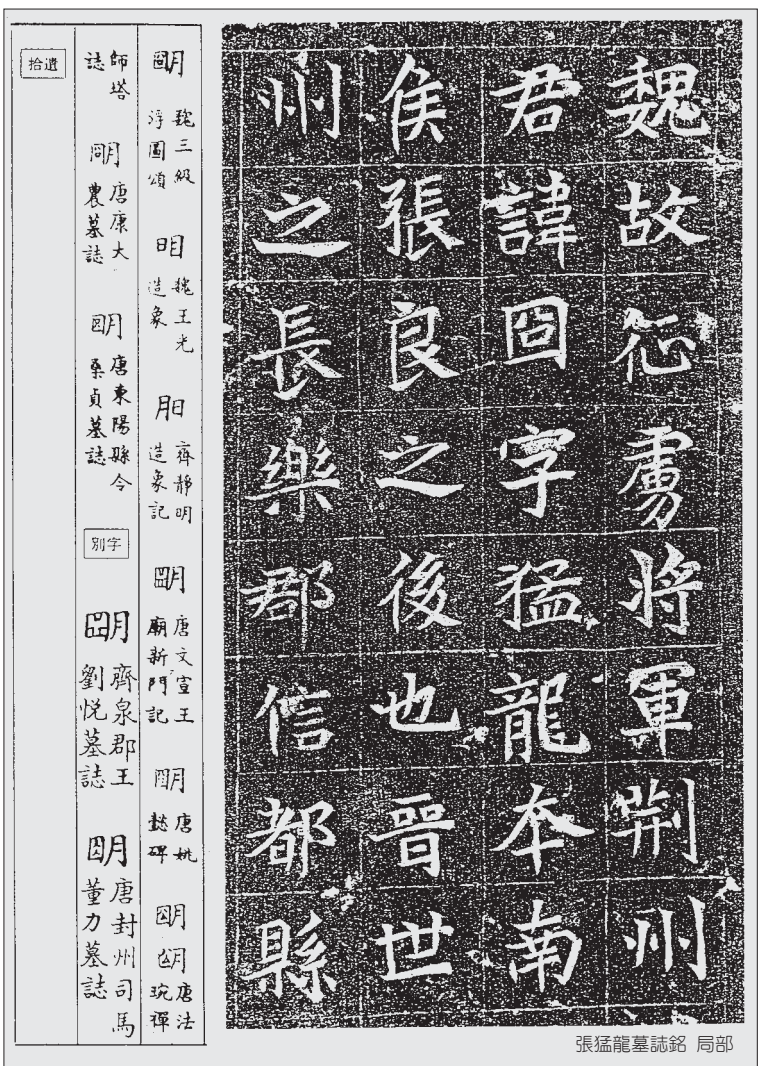 魏故征虜將軍荊州
君諱囧字猛龍本南
侯張良之後也晉世
州之長樂郡信都縣
朙 魏三級浮圖頌 眀 魏王光造象 𣇵 齊靜明造象記 朙 唐文宣王廟新門記 朙 唐姚懿碑 朙 朙 唐法琬禪
師塔誌 朙 唐康大農墓誌 朙 唐東陽縣令桑貞墓誌 別字 朙 齊泉郡王劉悅墓誌 朙 唐封州司馬董力墓誌
拾遺
張猛龍墓誌銘 局部